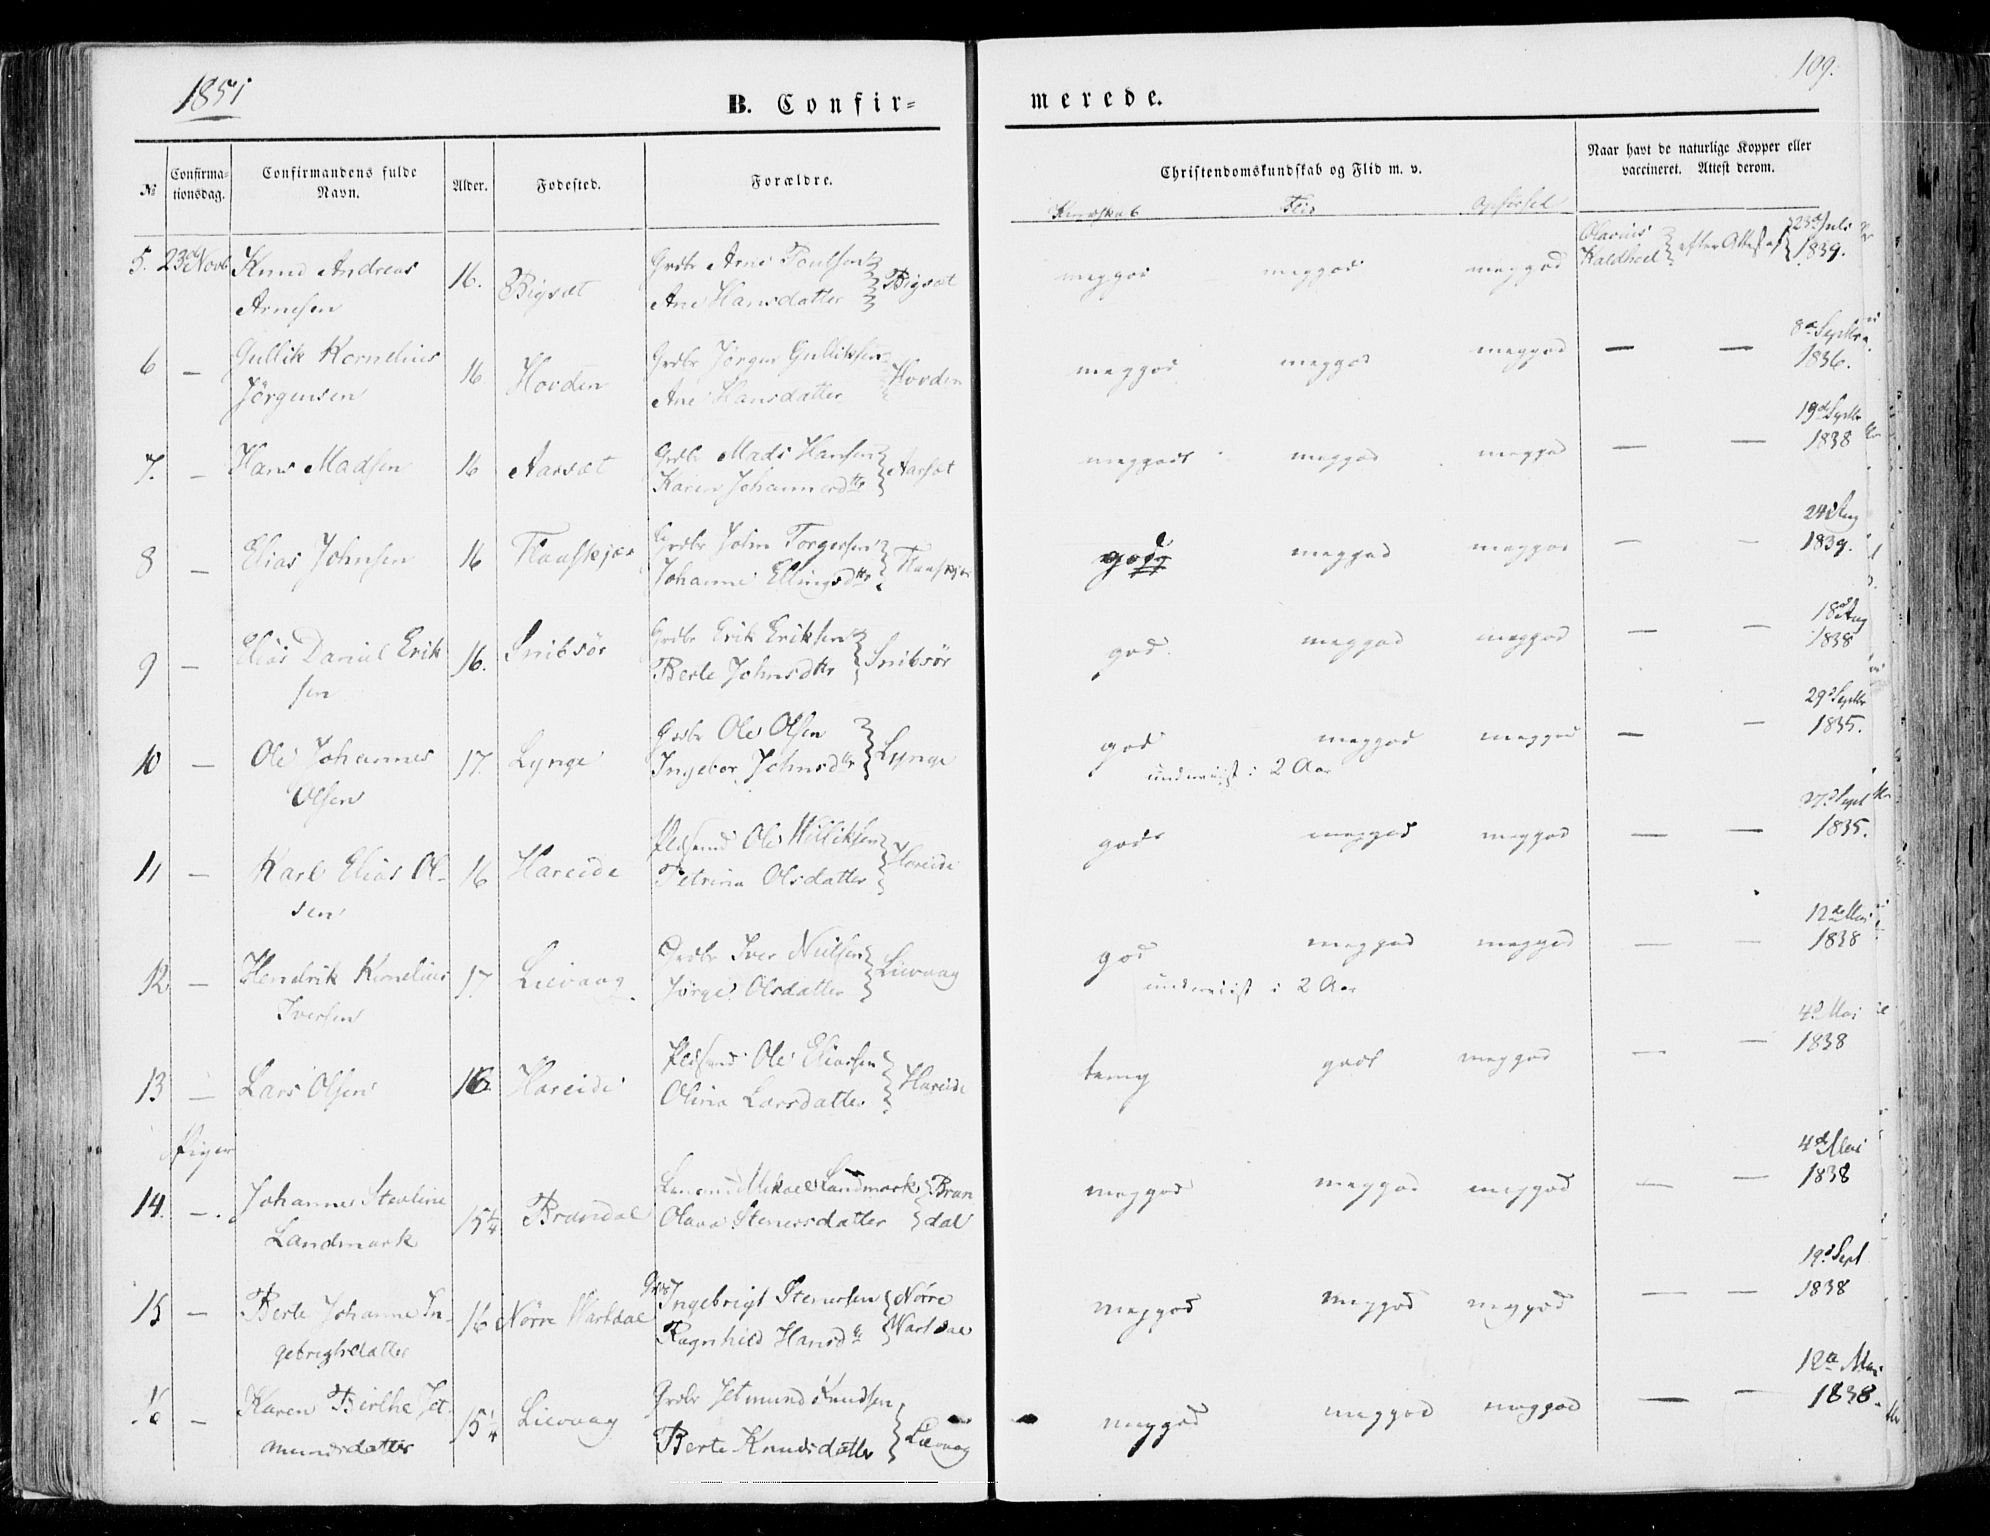 1851
109.
B. Confir=
merede.
№
Confirma-
tionsdag.
Confirmandens fulde
Navn.
Alder.
Fodested.
Forældre.
Christendomskundskab og Flid m. v.
Naar havt de naturlige Kopper eller
vaccineret. Attest derom.
Kundskab Flid Opførsel
5. 23d Novb Knud Andreas
Arnesen
16. Bigsæt
Grdbr Arne Poulsen
Ane Hansdatter
Bigsæt
meggod meggod meggod
Olavius
Kaldhoel
efter Attest af
23d Juli
1839.
6 — Gullik Kornelius
Jörgensen
16 Hovden
Grdbr Jørgen Gulliksen
Ane Hansdatter
Hovden
meggod megged megged — —
8d Septbr
1836.
7. — Hans Madsen 16 Aarsæt
Grdbr Mads Hansen
Karen Johannesdtr
Aarsæt
meggodt megged megged — —
19d Septbr
1838
8 — Elias Johnsen 16 Flaaskjær
Grdbr John Torgersen
Johanne Ellingsdtr
Flaaskjær
god megged megged — —
24d Aug
1839.
9 — Elias Daniel Erik
sen
16. Snibsör
Grdbr Erik Eriksen
Berte Johnsdtr
Snibsör
god megged megged — —
18d Aug
1838
10 — Ole Johannes
Olsen
17. Lynge
Grdbr Ole Olsen
Ingebor Johnsdtr
Lynge
god megged megged — —
underviist i 2 Aar
29d Septbr
1835.
11 — Karl Elias Ol-
sen
16 Hareide
Pladsmd Ole Williksen
Petrine Olsdatter
Hareide
god megged megged — —
27d Sept
1835.
12 — Hendrik Kornelius
Iversen
17 Lievaag
Grdbr Iver Nielsen
Jørge Olsdatter
Lievaag
god megged megged — —
underviist i 2 Aar
12d Mai
1838
13 — Lars Olsen 16 Hareide
Pladsmd Ole Eliassen
Oline Larsdatter
Hareide
temg godt megged — —
4d Mai
1838
Piger
14. — Johanne Stevline
Landmark
15 1/4 Brandal
Mikael Landmark
Olava Stenersdatter
Bran
dal
megged megged megged — —
4d Mai
1838
15 — Berte Johanne In-
gebrigtsdatter
16 Nörre Wartdal
Grdbr Ingebrigt Stenersen
Ragnhild Hansdtr
Nörre
Wartdal
megged megged megged — —
19d Sept
1838
16 — Karen Birthe Jet-
mundsdatter
15 1/4 Lievaag
Grdbr Jetmund Knudsen
Berte Knudsdatter
Lievaag
megged megged megged — —
12te Mai
1838.